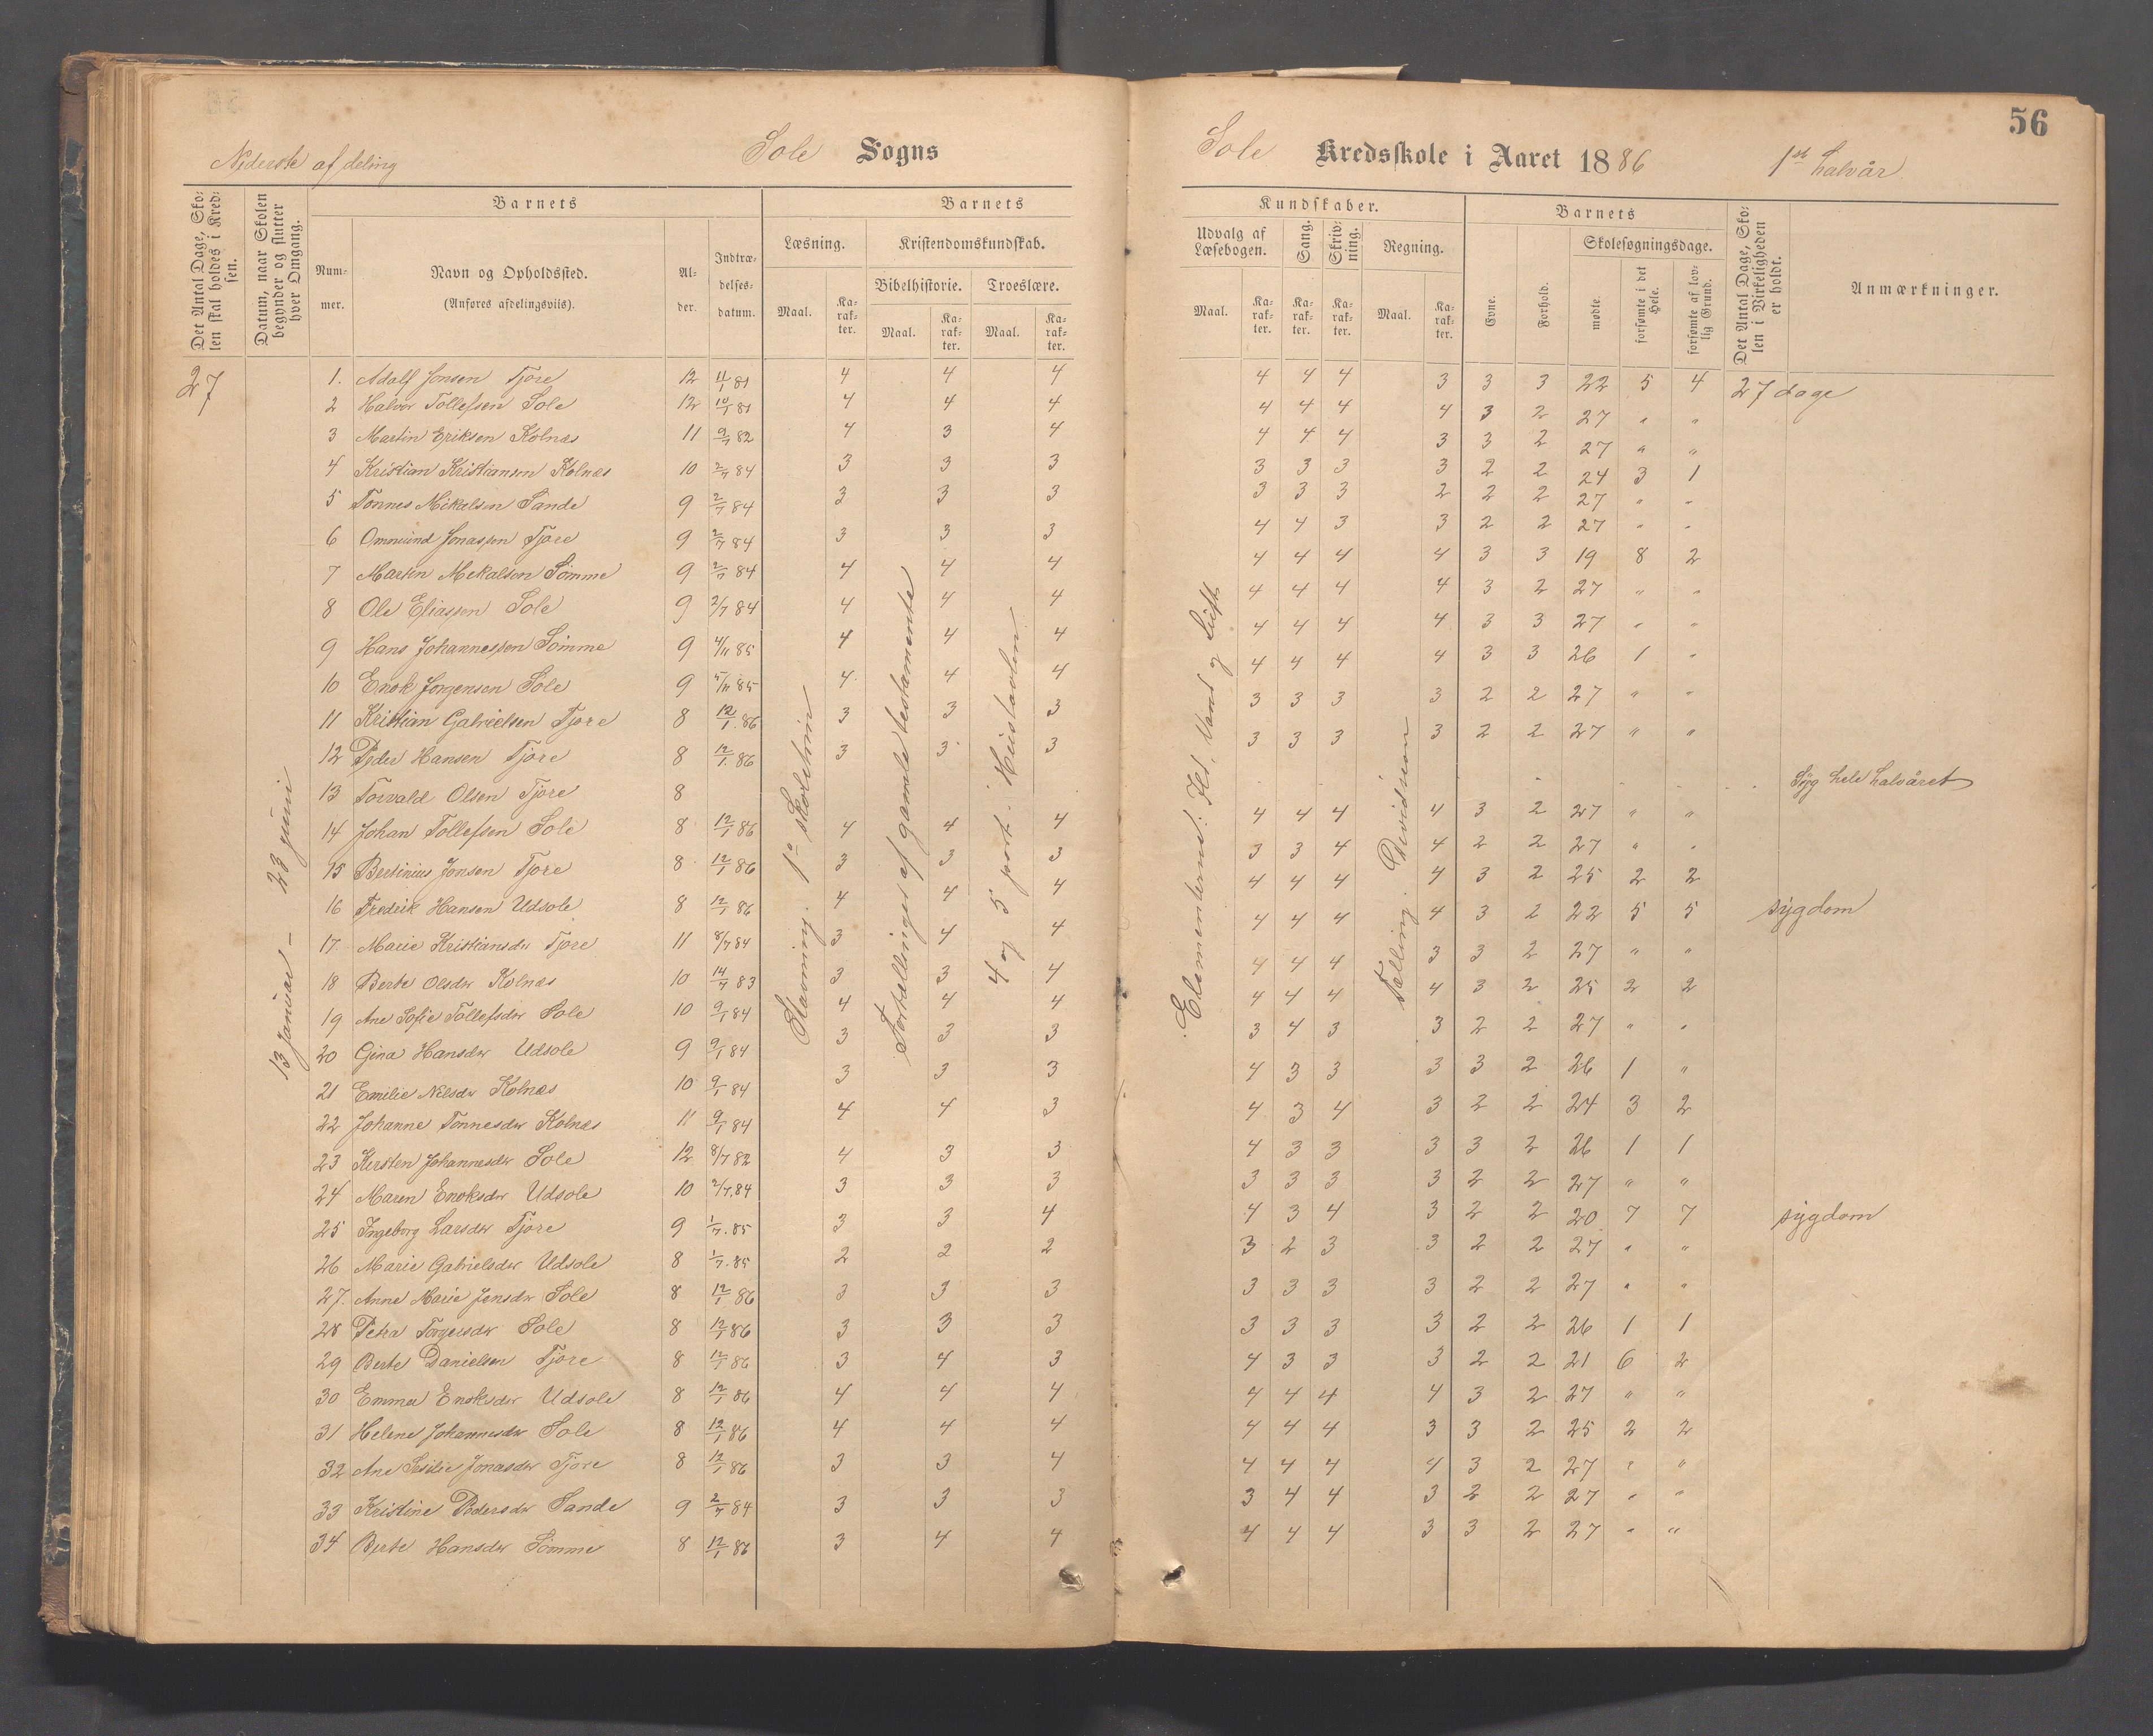 56
Nederste afdeling
Sole Sogns
Sole Kredsskole i Aaret 1886 1ste halvår
Det Antal Dage, Sko-
len skal holdes i Kred-
sen.
Datum, naar Skolen
begynder og slutter
hver Omgang.
Barnets
Num-
mer.
Navn og Opholdssted.
(Anføres afdelingsviis).
Al-
der.
Indtræ-
delses-
datum.
Barnets
Læsning.
Maal.
Ka-
rak-
ter.
Kristendomskundskab.
Bibelhistorie.
Maal.
Ka-
rak-
ter.
Troeslære.
Maal.
Ka-
rak-
ter.
Kundskaber.
Udvalg af
Læsebogen.
Maal.
Ka-
rak-
ter.
Sang.
Ka-
rak-
ter.
Skriv-
ning.
Ka-
rak-
ter.
Regning.
Maal.
Ka-
rak-
ter.
Barnets
Evne.
Forhold.
Skolesøgningsdage.
mødte.
forsømte i det
Hele.
forsømte af lov-
lig Grund.
Det Antal Dage, Sko-
len i Virkeligheden
er holdt.
Anmærkninger.
27
13 januar – 23 juni
Stavning. 1ste skoletrin
Fortællinger af gamle testamente
4 og 5 part. Huistavlen
Elementerne: Ild, Vand og Luft
Tælling. Devidseon
1. Adolf Jonsen Tjore 12 11/1 81 4 4 4 4 4 4 3 3 3 22 5 4 27 dage
2 Halvor Tollefsen Sole 12 10/1 81 4 4 4 4 4 4 4 3 2 27 " "
3 Martin Eriksen Kolnæs 11 9/7 82 4 3 4 4 4 4 3 3 2 27 " "
4 Kristian Kristiansen Kolnæs 10 2/7 84 3 3 3 3 3 3 3 2 2 24 3 1
5 Tønnes Mikalsen Sande 9 2/7 84 3 3 3 3 3 3 2 2 2 27 " "
6 Ommund Jonassen Tjore 9 2/7 84 3 3 3 4 4 3 3 2 2 27 " "
7 Martin Mekalson Sømme 9 2/7 84 4 4 4 4 4 4 4 3 3 19 8 2
8 Ole Eliassen Sole 9 2/7 84 4 4 4 4 4 4 4 3 2 27 " "
9 Hans Johannessen Sømme 9 4/11 85 4 4 4 4 4 4 4 3 3 27 " "
10 Enok Jorgensen Sole 9 5/11 85 4 4 4 4 4 4 4 3 3 26 1 "
11 Kristian Gabrielsen Tjore 8 12/1 86 3 3 3 3 3 3 3 2 2 27 " "
12 Peder Hansen Tjore 8 12/1 86 3 3 3 3 3 3 3 2 2 27 " "
13 Torvald Olsen Tjore 8 Syg hele halvåret
14 Johan Tollefsen Sole 8 12/1 86 4 4 4 4 4 4 4 3 2 27 " "
15 Bertinius Jonsen Tjore 8 12/1 86 3 3 3 3 3 4 4 2 2 27 " "
16 Fredrik Hansen Udsole 8 12/1 86 4 4 4 4 4 4 4 3 2 25 2 2
17. Marie Kristiansdtr Tjore 11 8/7 84 3 4 4 4 4 4 4 3 2 22 5 5 sygdom
18 Berte Olsdtr Kolnæs 10 14/7 83 3 3 4 4 4 4 3 3 2 27 " "
19 Ane Sofie Tollefsdtr Sole 10 9/1 84 4 4 4 4 4 4 4 3 2 25 2 2
20 Gina Hansdtr Udsole 9 9/1 84 3 3 3 3 4 3 3 2 2 27 " "
21 Emilie Nilsdtr Kolnæs 10 9/1 84 3 3 3 4 3 3 3 3 2 26 1 "
22 Johanne Tønnesdtr Kolnæs 11 9/1 84 4 4 3 4 3 4 3 2 2 24 3 2
23 Kersten Johannesdtr Sole 12 8/7 82 4 3 3 4 3 3 3 3 2 26 1 1
24 Maren Enoksdtr Udsole 10 2/7 84 3 3 3 3 3 3 3 2 2 27 " "
25 Ingeborg Larsdtr Tjore 9 1/7 85 3 3 4 4 3 4 3 2 2 20 7 7 sygdom
26 Marie Gabrielsdtr Udsole 8 1/7 85 2 2 2 3 2 3 3 2 2 27 " "
27. Anne Marie Jensdtr Sole 8 12/1 86 3 3 3 3 3 3 3 2 2 27 " "
28 Petra Torgersdtr Sole 8 12/1 86 3 3 3 3 3 3 3 2 2 26 1 1
29 Berte Danielsen Tjore 8 12/1 86 3 4 3 4 3 3 3 2 2 21 6 2
30 Emma Enoksdtr Udsole 8 12/1 86 4 4 4 4 4 4 4 3 2 27 " "
31 Helene Johannesdtr Sole 8 12/1 86 4 4 4 4 4 4 3 3 2 25 2 2
32 Ane Jonasdtr Tjore 8 12/1 86 3 3 4 4 4 4 4 3 2 27 " "
33 Kristine Pedersdtr Sande 9 2/7 84 3 3 3 3 4 4 3 2 2 27 " "
34 Berte Hansdtr Sømme 8 12/1 86 3 4 4 4 4 4 3 3 2 27 " "